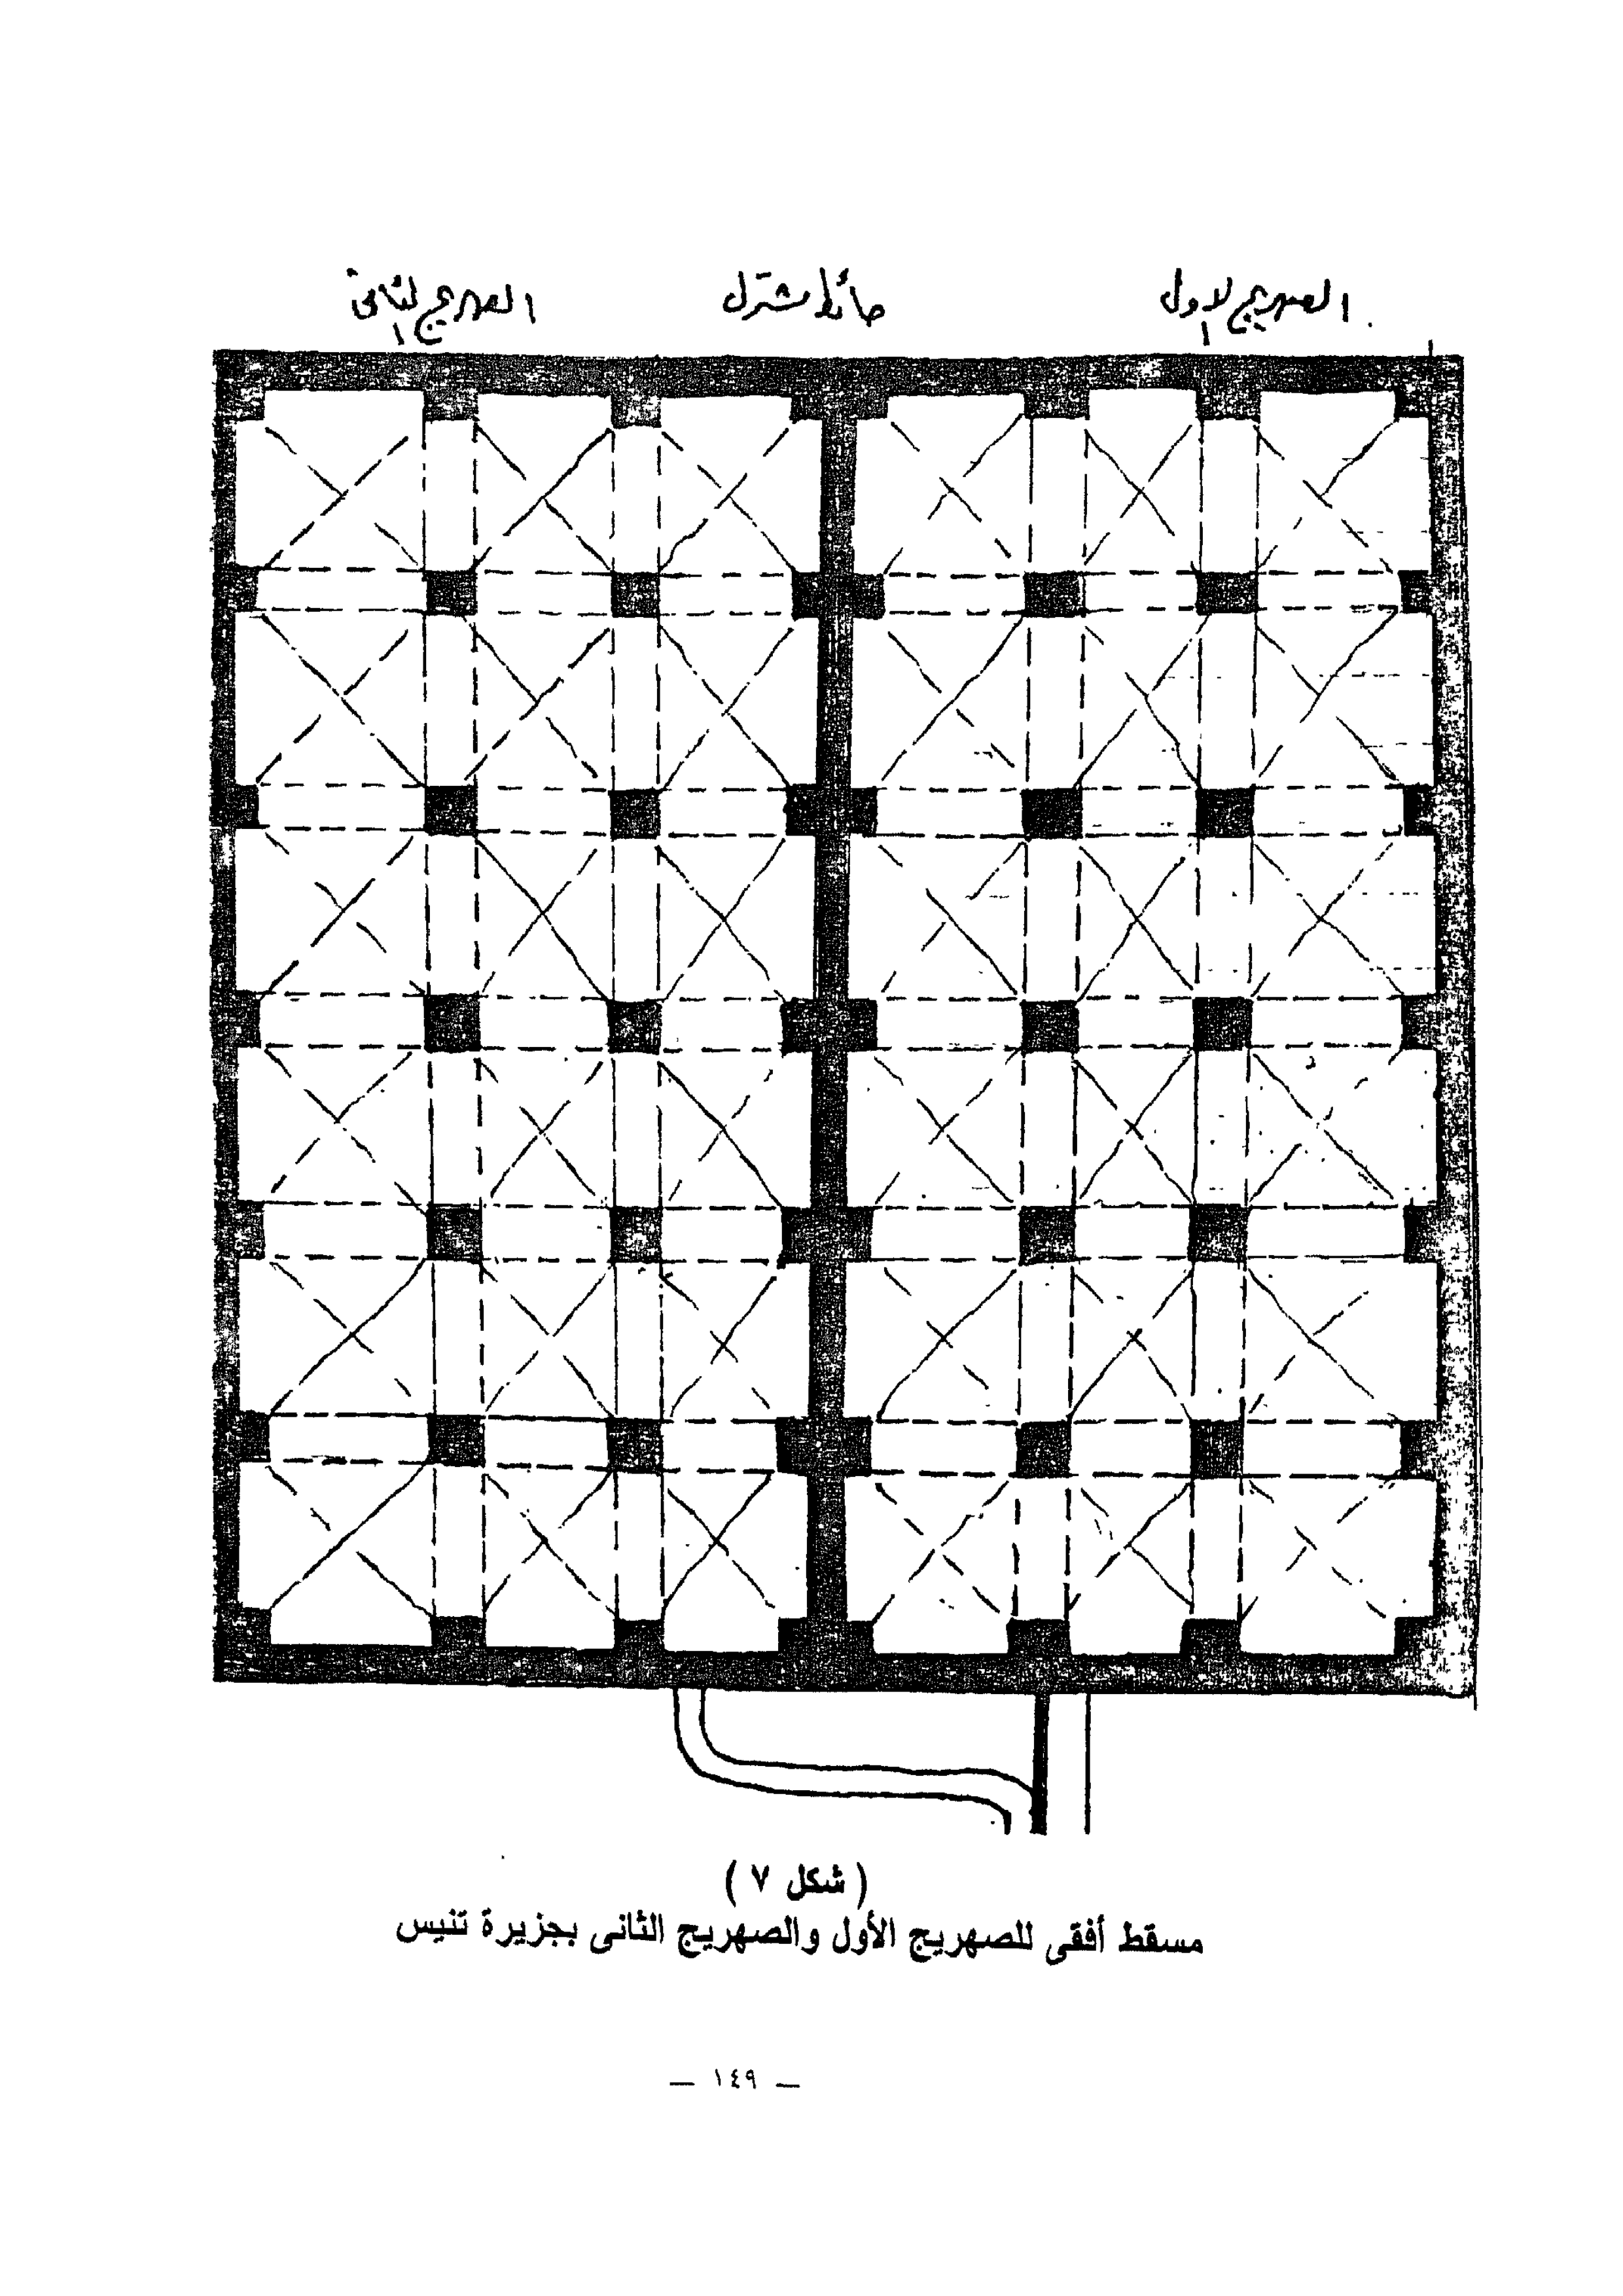 الصهريج الاول
حائط مشترك
الصهريج الثانى
( شكل ٧ )
مسقط أفقى للصهريج الأول والصهريج الثانى بجزيرة تنيس
— ١٤٩ —